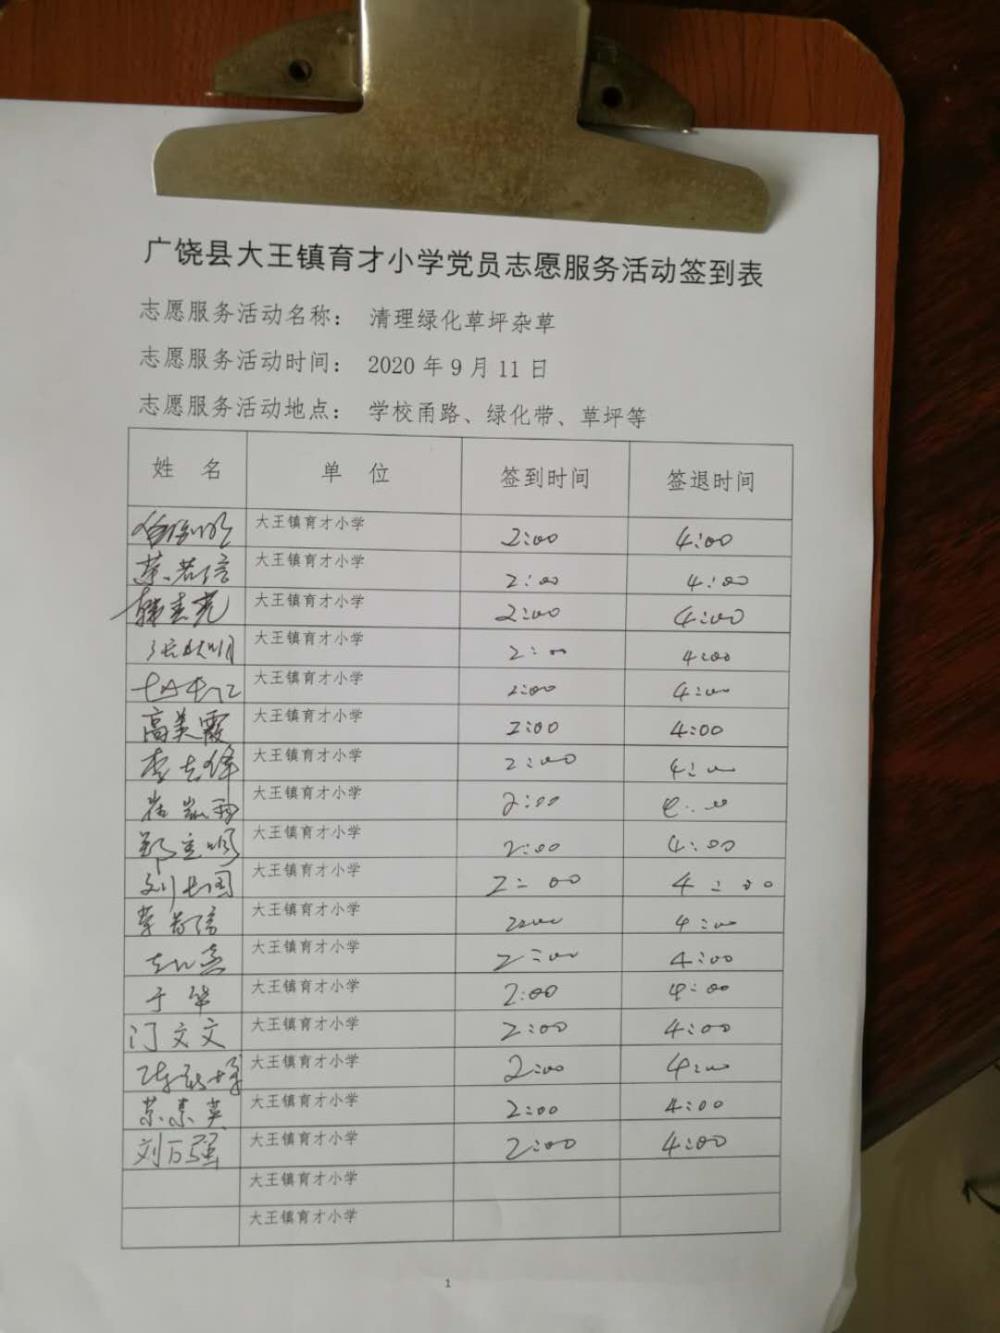 广饶县大王镇育才小学党员志愿服务活动签到表
志愿服务活动名称： 清理绿化草坪杂草
志愿服务活动时间： 2020 年 9 月 11 日
志愿服务活动地点： 学校甬路、绿化带、草坪等
姓 名 单 位 签到时间 签退时间
大王镇育才小学 2:00 4:00
大王镇育才小学 2:00 4:00
大王镇育才小学 2:00 4:00
大王镇育才小学 2:00 4:00
大王镇育才小学 2:00 4:00
高美霞 大王镇育才小学 2:00 4:00
李志锋 大王镇育才小学 2:00 4:00
大王镇育才小学 2:00 4:00
郑立顺 大王镇育才小学 2:00 4:00
刘长国 大王镇育才小学 2:00 4:00
大王镇育才小学 2:00 4:00
大王镇育才小学 2:00 4:00
于华 大王镇育才小学 2:00 4:00
门文文 大王镇育才小学 2:00 4:00
大王镇育才小学 2:00 4:00
苏素英 大王镇育才小学 2:00 4:00
刘万强 大王镇育才小学 2:00 4:00
大王镇育才小学
大王镇育才小学
1